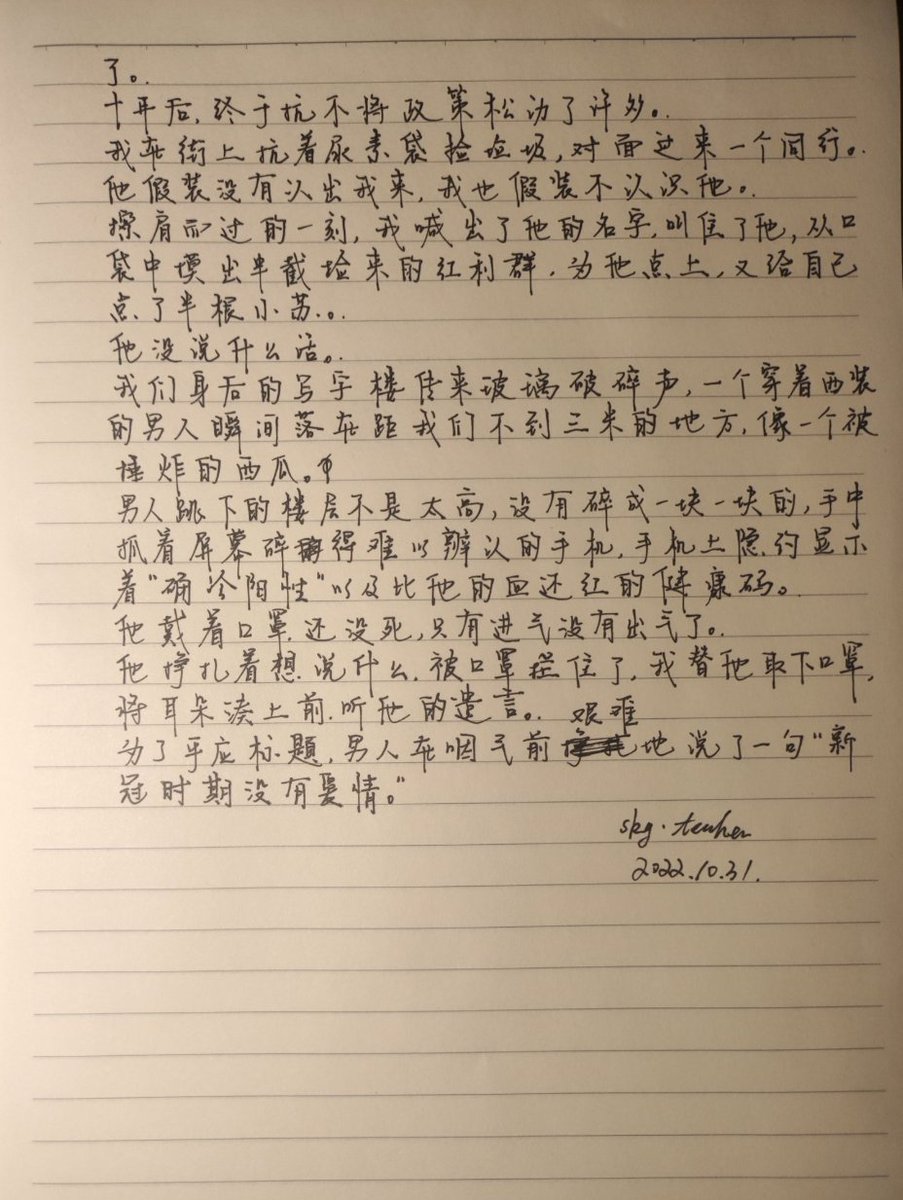 了。
十年后,终于抗不将政策松动了许多。
我在街上抗着尿素袋捡垃圾,对面过来一个同行。
他假装没有认出我来,我也假装不认识他。
擦肩而过的一刻,我喊出了他的名字,叫住了他,从口
袋中摸出半截捡来的红利群,为他点上,又给自己
点了半根小苏。
他没说什么话。
我们身后的写字楼传来玻璃破碎声,一个穿着西装
的男人瞬间落在距我们不到三米的地方,像一个被
捶炸的西瓜。
男人跳下的楼层不是太高,没有碎成一块一块的,手中
抓着屏幕碎得难以辨认的手机,手机上隐约显示
着"确诊阳性"以及比他的血还红的健康码。
他戴着口罩,还没死,只有进气没有出气了。
他挣扎着想说什么,被口罩拦住了,我替他取下口罩,
将耳朵凑上前,听他的遗言。
为了呼应标题,男人在咽气前艰难地说了一句"新
冠时期没有爱情。"
skg·
2022.10.31.